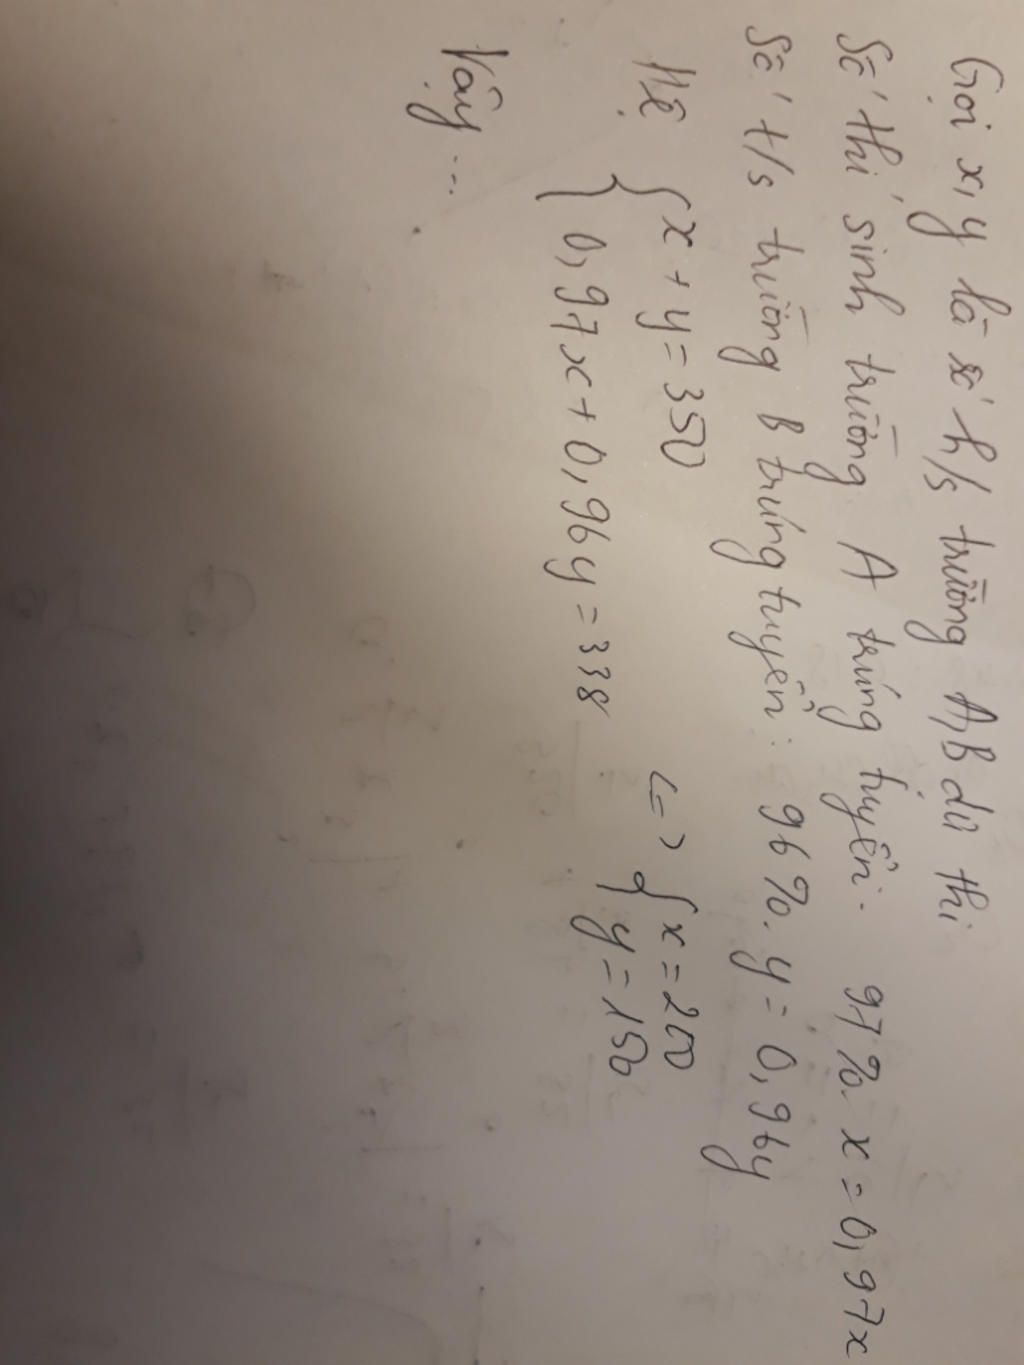 Gọi x, y là số h/s trường A, B dự thi
Số thí sinh trường A trúng tuyển: 97%. x = 0,97x
Số t/s trường B trúng tuyển: 96%. y = 0,96y
Hệ { x + y = 350
{ 0,97x + 0,96y = 338 <=> { x = 200
y = 150
Vậy ...